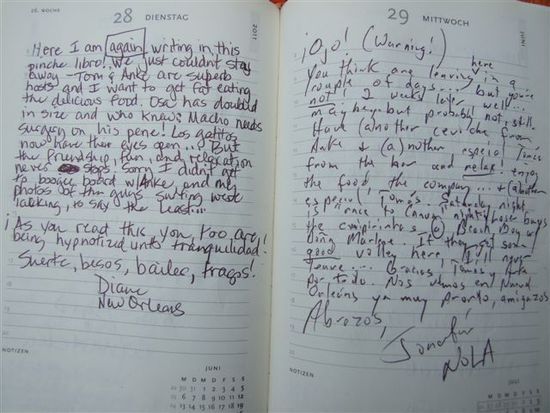 26. WOCHE 28 DIENSTAG
2011
Here I am again writing in this
pinche libro! We just couldn't stay
away - Tom & Anke are superb
hosts and I want to get fat eating
the delicious food. Osa has doubled
in size and who knew? Macho needs
surgery on his pene! Los gatitos
now have their eyes open...! But
the friendship, fun, and relaxation
never stops. Sorry I didn't get
to boogie board w/Anke, and my
photos of the guys surfing were
lacking, to say the least...
¡As you read this, you, too, are
being hypnotized unto tranquilidad!
Suerte, besos, bailes, tragos!
Diane
New Orleans
NOTIZEN
JUNI
M D M D F S S
30 31 1 2 3 4 5
6 7 8 9 10 11 12
13 14 15 16 17 18 19
29 MITTWOCH
JUNI
¡Ojo! (Warning!)
You think are leaving here in a
couple of days... but you're
not! 2 weeks later, well...
maybe, but probably not, still.
Have (a)nother ceviche from
Anke & (a)nother especial Tomás
from the bar and relax! enjoy
the food the company... & (a)nother
especial Tomás. Saturday night
is race to (Navy) night, lose buoys
the caipirinhas @ Beach Boy w/
Doña Marlene. If they get some
good valley here I'll never
leave... Gracias Tomás y Anke
por todo. Nos vemos en Nueva
Orleáns ya muy pronto, amigazos
Abrazos,
Jonathan
NOLA
NOTIZEN
JULI